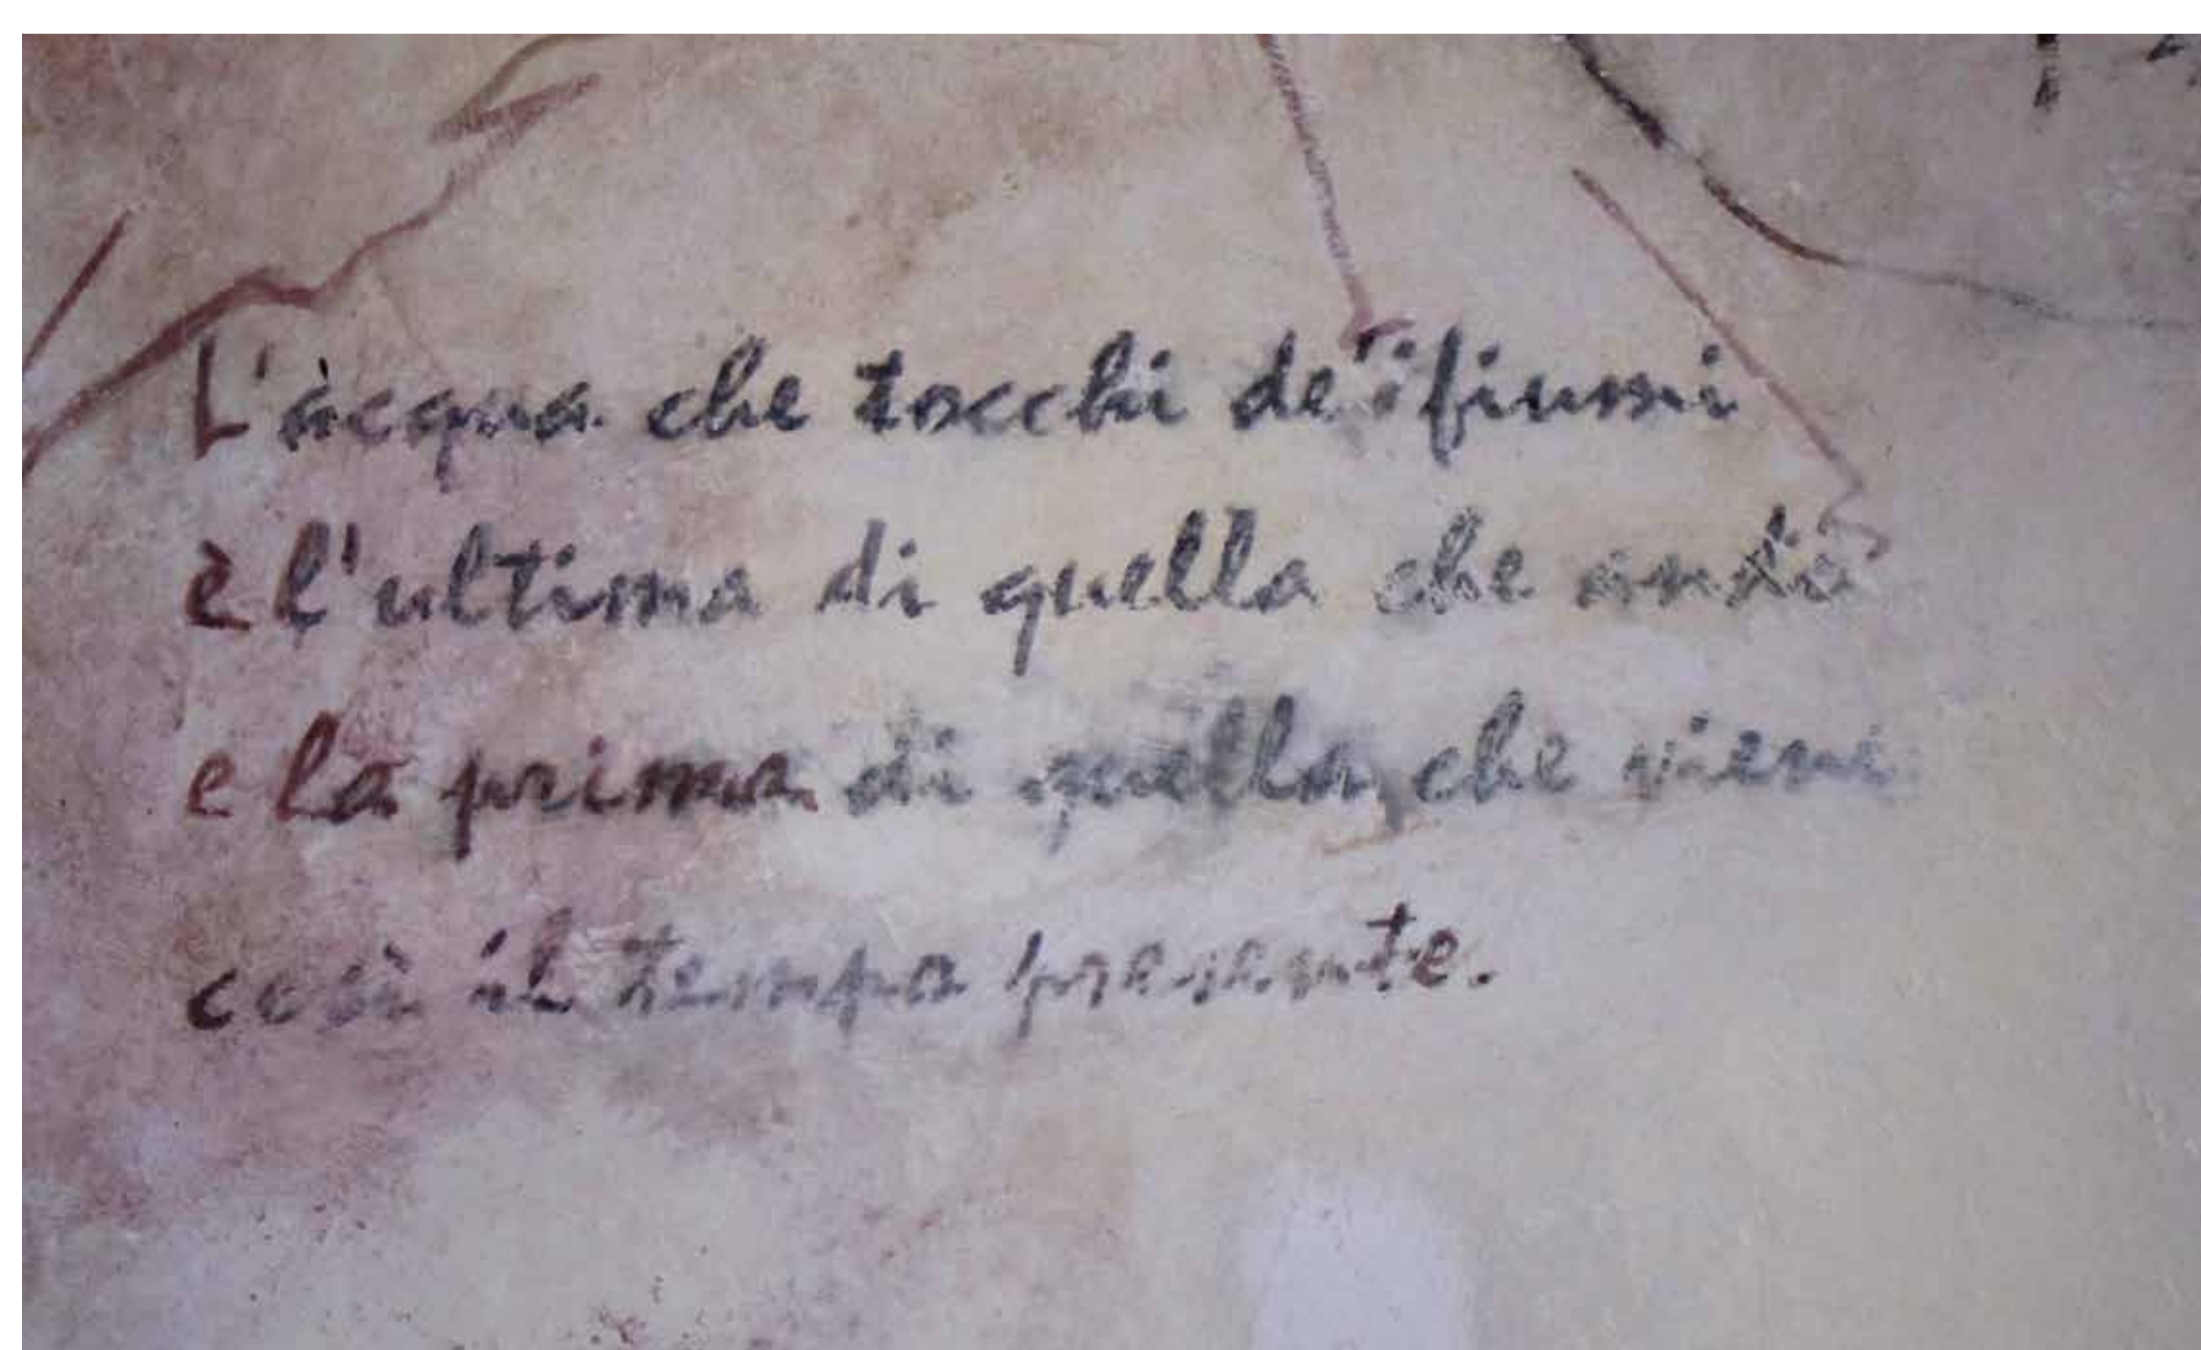 L'acqua che tocchi dei fiumi
è l'ultima di quella che andò
e la prima di quella che viene
così il tempo presente.